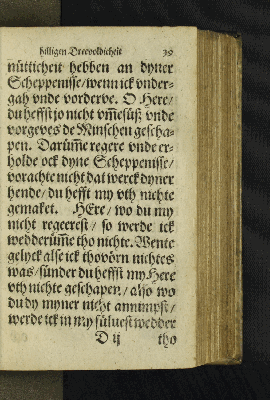 hilligen Dreevoldicheit 39
nütticheit hebben an dyner
Scheppenisse / wenn ick vnder-
gah vnde vorderve. O Here /
du heffst jo nicht vm̃esüß vnde
vorgeves de Minschen gescha-
pen. Darüm̃e regere vnde er-
holde ock dyne Scheppenisse /
vorachte nicht dat werck dyner
hende / du hefft my vth nichte
gemaket. HEre / wo du my
nicht regeerest / so werde ick
wedderüm̃e tho nichte. Wente
gelyck alse ick thovörn nichtes
was / sünder du heffst my Here
vth nichte geschapen / also wo
du dy myner nicht annimpst /
werde ick in my sülvest wedder
D ij tho